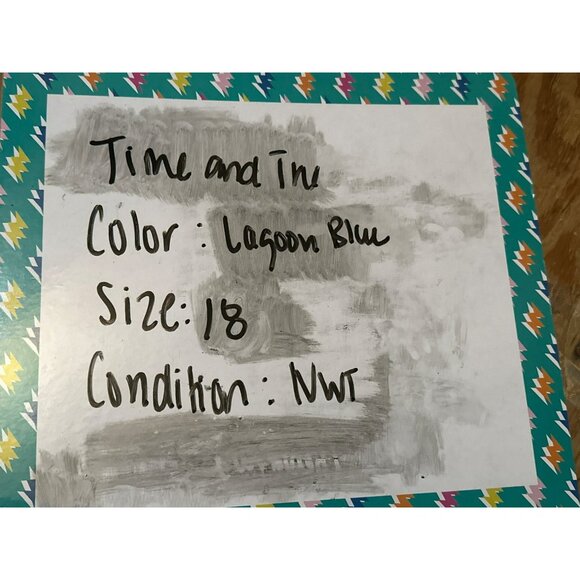 Time and Tru
Color: Lagoon Blue
Size: 18
Condition: NWT